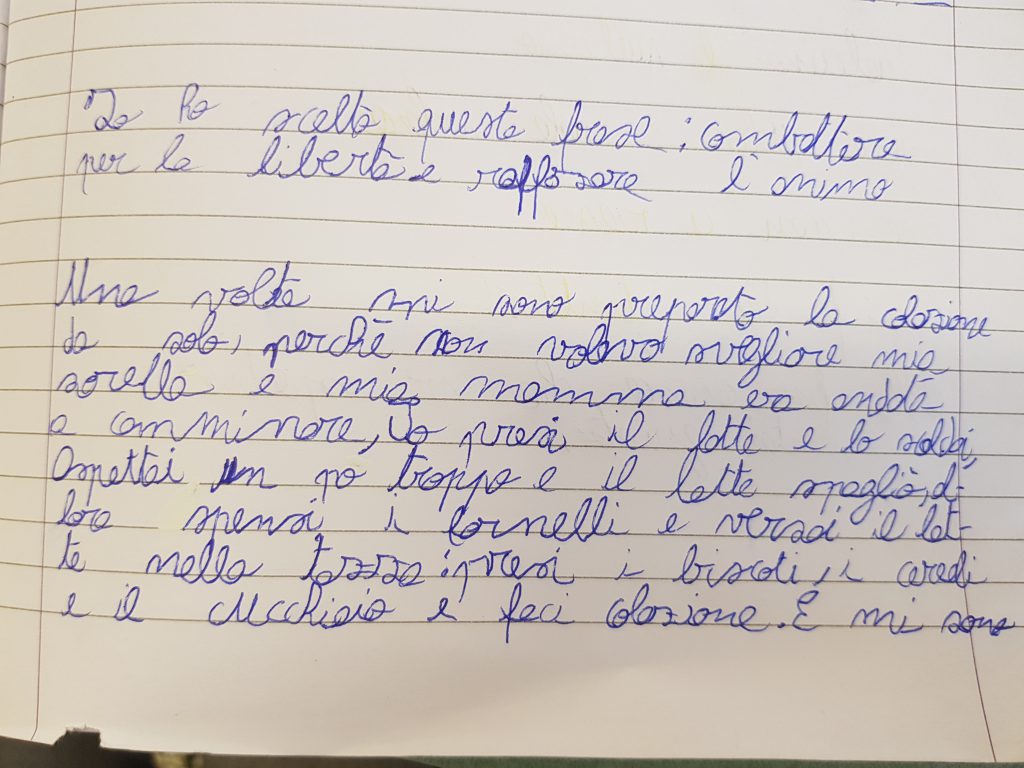 Io ho scelto questa frase: combattere
per la libertà e raffozare l'animo
Una volta mi sono preparato la colazione
da solo, perché non volevo svegliare mia
sorella e mia mamma era andata
a camminare, Io presi il latte e lo scaldai,
Aspettai un po troppo e il latte spagliò, al-
lora spensi i fornelli e versai il lat-
te nella tazza: presi i biscoti, i cereali
e il cucchiaio e feci colazione. E mi sono